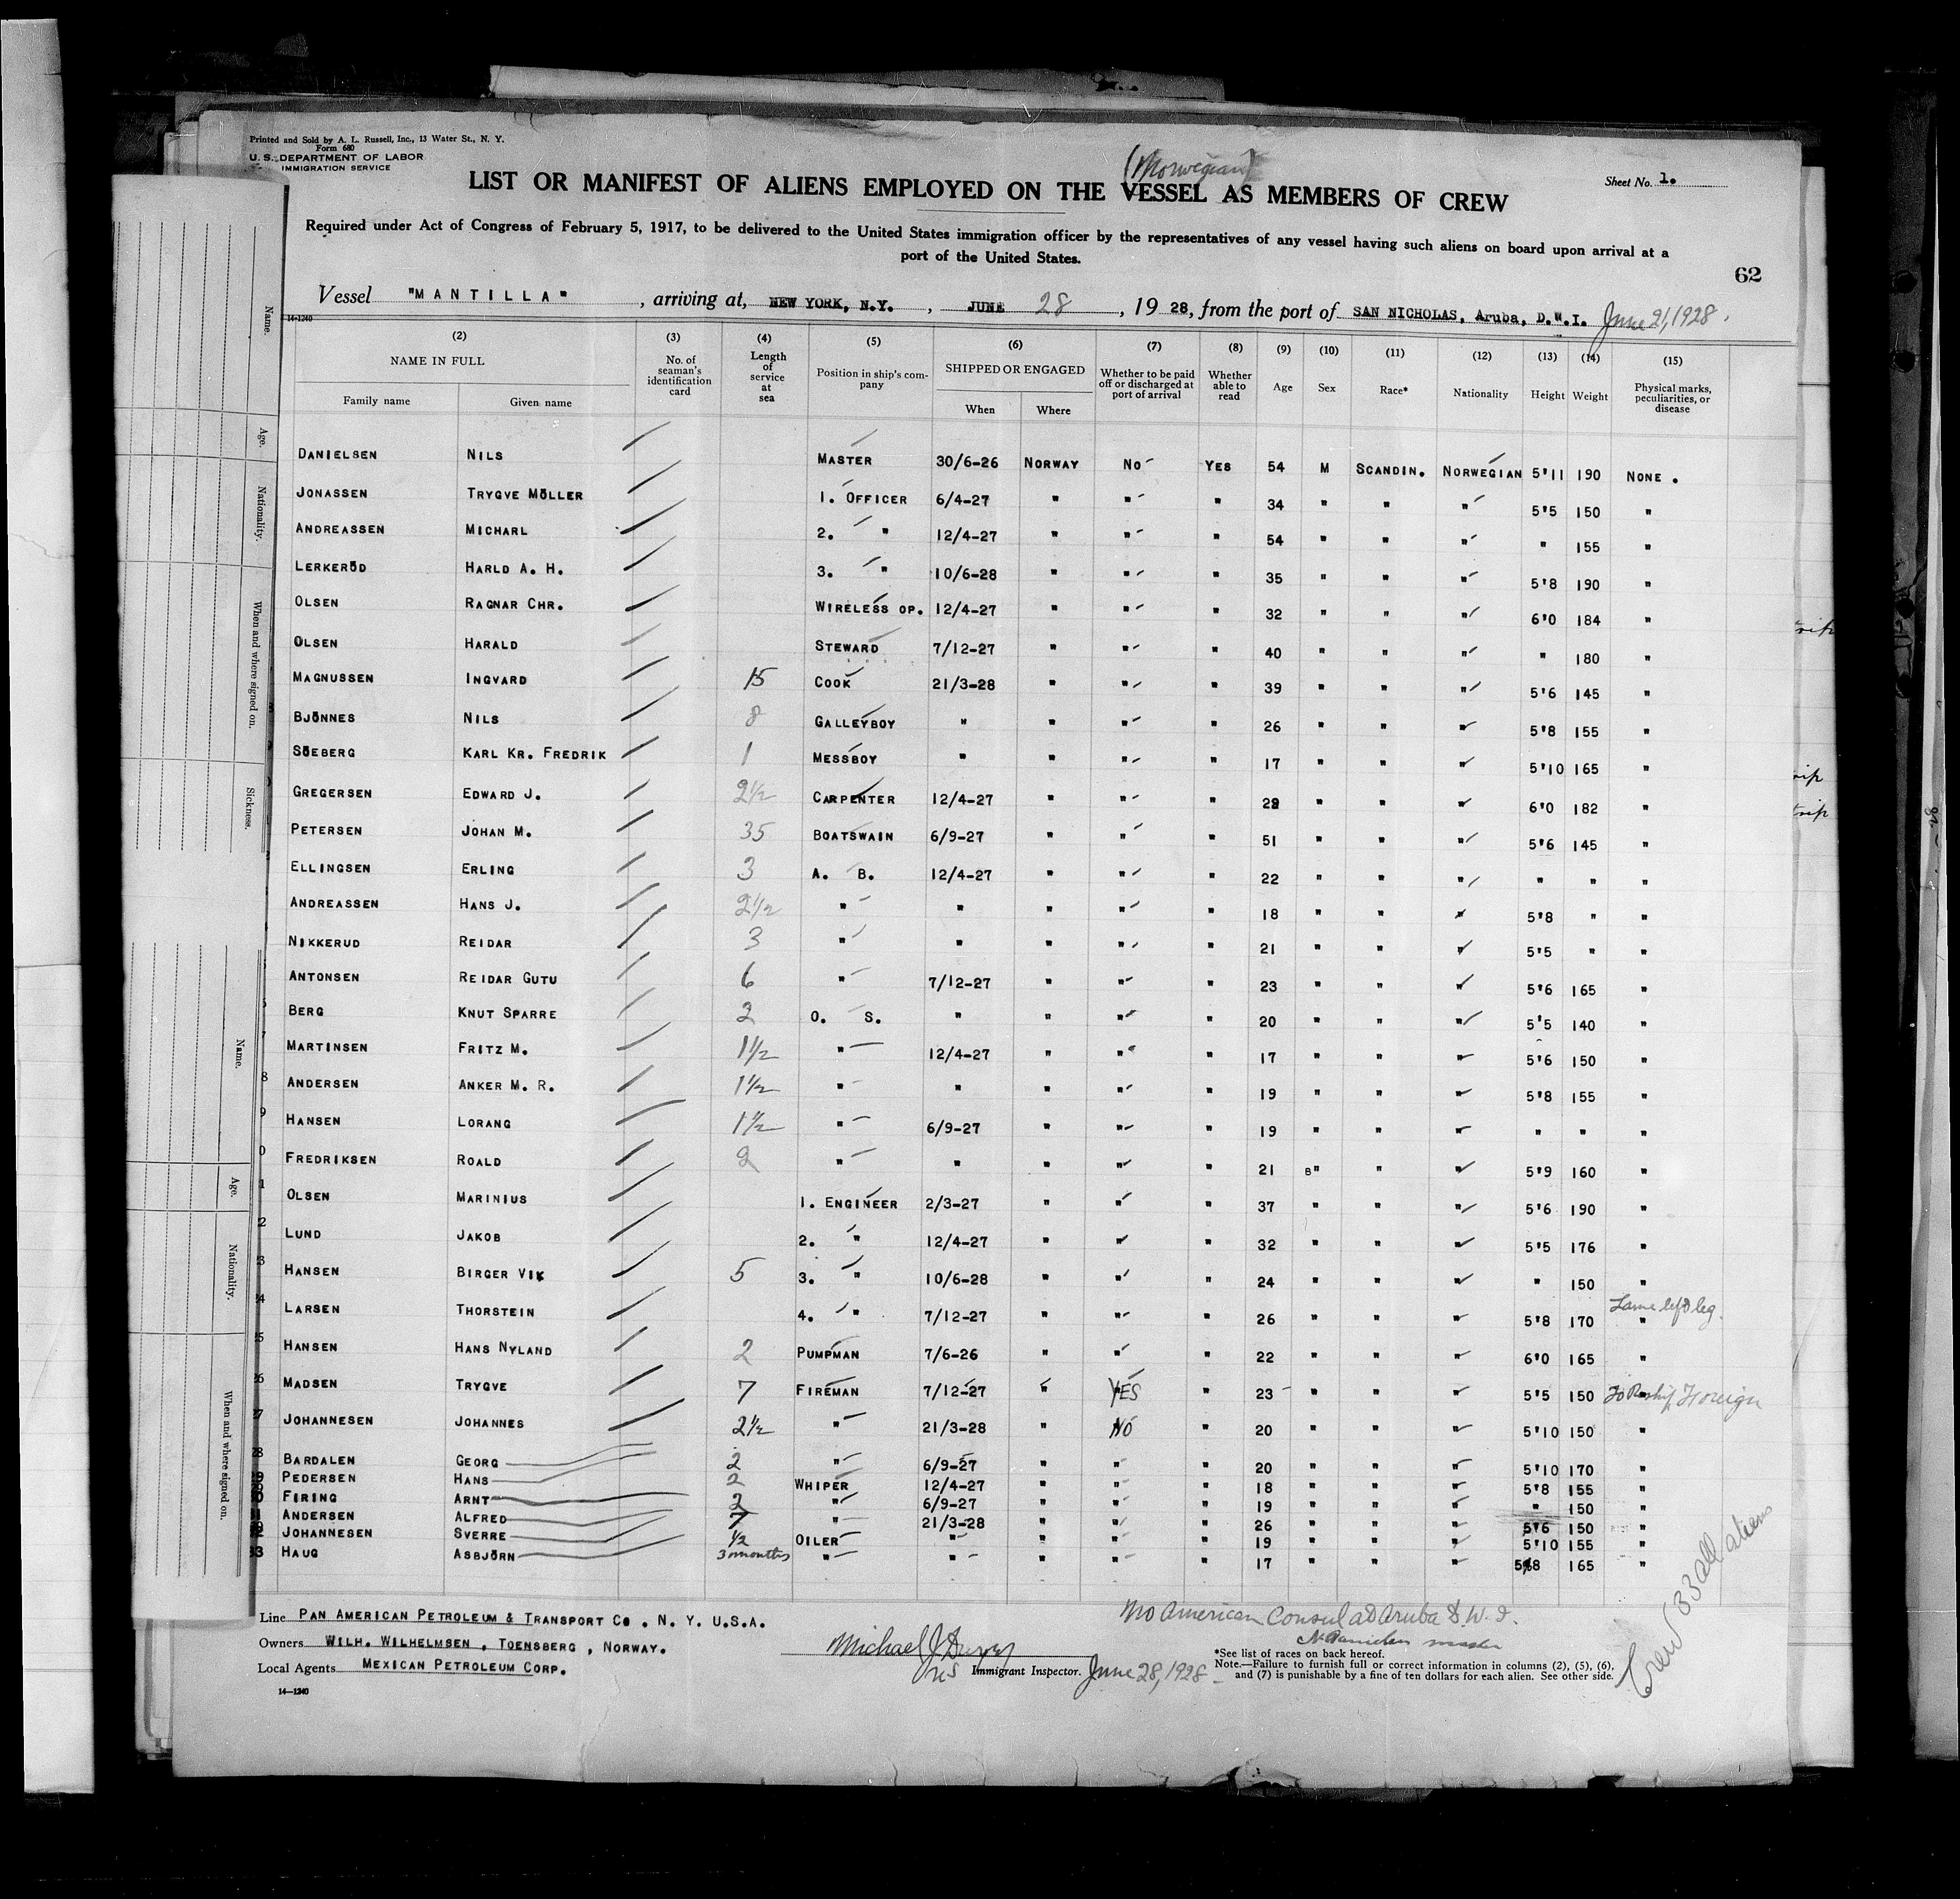 Printed and Sold by A. L. Russell, Inc., 13 Water St., N. Y.
Form 680
U. S. DEPARTMENT OF LABOR
IMMIGRATION SERVICE
(Norwegian)
Sheet No. 1.
LIST OR MANIFEST OF ALIENS EMPLOYED ON THE VESSEL AS MEMBERS OF CREW
Required under Act of Congress of February 5, 1917, to be delivered to the United States immigration officer by the representatives of any vessel having such aliens on board upon arrival at a
port of the United States.
62
Vessel "MANTILLA", arriving at, NEW YORK, N.Y., JUNE 28, 1928, from the port of SAN NICHOLAS, Aruba, D.W.I. June 21, 1928.
14-1240
(2) (3) (4) (5) (6) (7) (8) (9) (10) (11) (12) (13) (14) (15)
NAME IN FULL No. of seaman's identification card Length of service at sea Position in ship's company SHIPPED OR ENGAGED Whether to be paid off or discharged at port of arrival Whether able to read Age Sex Race* Nationality Height Weight Physical marks, peculiarities, or disease
Family name Given name When Where
DANIELSEN NILS MASTER 30/6-26 NORWAY NO YES 54 M SCANDIN. NORWEGIAN 5'11 190 NONE.
JONASSEN TRYGVE MÖLLER 1. OFFICER 6/4-27 " " " 34 " " " 5'5 150 "
ANDREASSEN MICHARL 2. " 12/4-27 " " " 54 " " " " 155 "
LERKERÖD HARLD A. H. 3. " 10/6-28 " " " 35 " " " 5'8 190 "
OLSEN RAGNAR CHR. WIRELESS OP. 12/4-27 " " " 32 " " " 6'0 184 "
OLSEN HARALD STEWARD 7/12-27 " " " 40 " " " " 180 "
MAGNUSSEN INGVARD 15 COOK 21/3-28 " " " 39 " " " 5'6 145 "
BJÖNNES NILS 8 GALLEYBOY " " " " 26 " " " 5'8 155 "
SÖEBERG KARL KR. FREDRIK 1 MESSBOY " " " " 17 " " " 5'10 165 "
GREGERSEN EDWARD J. 2½ CARPENTER 12/4-27 " " " 28 " " " 6'0 182 "
PETERSEN JOHAN M. 35 BOATSWAIN 6/9-27 " " " 51 " " " 5'6 145 "
ELLINGSEN ERLING 3 A. B. 12/4-27 " " " 22 " " " " " "
ANDREASSEN HANS J. 2½ " " " " " 18 " " " 5'8 " "
NIKKERUD REIDAR 3 " " " " " 21 " " " 5'5 " "
ANTONSEN REIDAR GUTU 6 " 7/12-27 " " " 23 " " " 5'6 165 "
BERG KNUT SPARRE 2 O. S. " " " " 20 " " " 5'5 140 "
MARTINSEN FRITZ M. 1½ " 12/4-27 " " " 17 " " " 5'6 150 "
ANDERSEN ANKER M. R. 1½ " " " " " 19 " " " 5'8 155 "
HANSEN LORANG 1½ " 6/9-27 " " " 19 " " " " " "
FREDRIKSEN ROALD 2 " " " " " 21 " " " 5'9 160 "
OLSEN MARINIUS 1. ENGINEER 2/3-27 " " " 37 " " " 5'6 190 "
LUND JAKOB 2. " 12/4-27 " " " 32 " " " 5'5 176 "
HANSEN BIRGER VIK 5 3. " 10/6-28 " " " 24 " " " " 150 "
LARSEN THORSTEIN 4. " 7/12-27 " " " 26 " " " 5'8 170 " Lame left leg.
HANSEN HANS NYLAND 2 PUMPMAN 7/6-26 " " " 22 " " " 6'0 165 "
MADSEN TRYGVE 7 FIREMAN 7/12-27 " YES " 23 " " " 5'5 150 To Reship Foreign
JOHANNESEN JOHANNES 2½ " 21/3-28 " NO " 20 " " " 5'10 150 "
BARDALEN GEORG 2 " 6/9-27 " " " 20 " " " 5'10 170 "
PEDERSEN HANS 2 WHIPER 12/4-27 " " " 18 " " " 5'8 155 "
FIRING ARNT 2 " 6/9-27 " " " 19 " " " " 150 "
ANDERSEN ALFRED 7 " 21/3-28 " " " 26 " " " 5'6 150 "
JOHANNESEN SVERRE ½ OILER " " " " 19 " " " 5'10 155 "
33 HAUG ASBJÖRN 3 months " " " " " 17 " " " 5'8 165 "
Line PAN AMERICAN PETROLEUM & TRANSPORT CO. N. Y. U.S.A.
Owners WILH. WILHELMSEN, TOENSBERG, NORWAY.
Local Agents MEXICAN PETROLEUM CORP.
14-1240
Michael J.
US Immigrant Inspector. June 28, 1928
No American Consul at Aruba D. W. I.
N. Danielsen master
*See list of races on back hereof.
Note.—Failure to furnish full or correct information in columns (2), (5), (6),
and (7) is punishable by a fine of ten dollars for each alien. See other side.
Crew (33 all aliens
Name.
Age.
Nationality.
When and where signed on.
Sickness.
Name.
Age.
Nationality.
When and where signed on.
trip
trip
trip